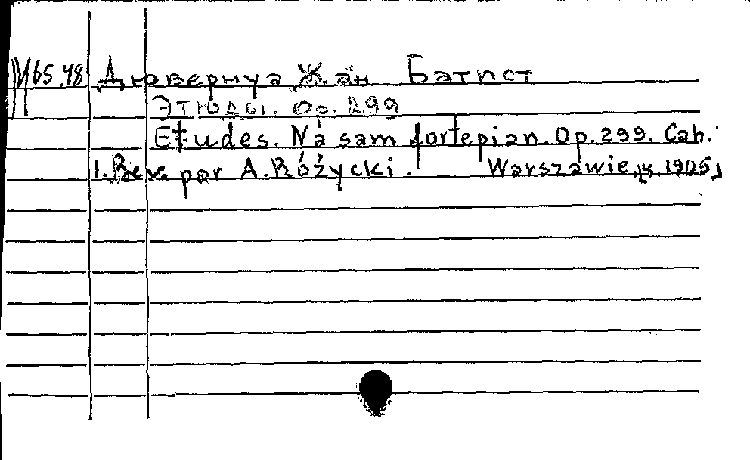 И65.48 Дювернуа Жан Батист
Этюды. Op. 299
Etudes. Na sam fortepian. Op. 299. Cah.
1. Rev. par A. Różycki. Warszawie, 1905,